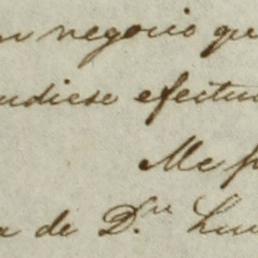 un negocio qu
udiese efectu
Me p
a de D.ⁿ Lui